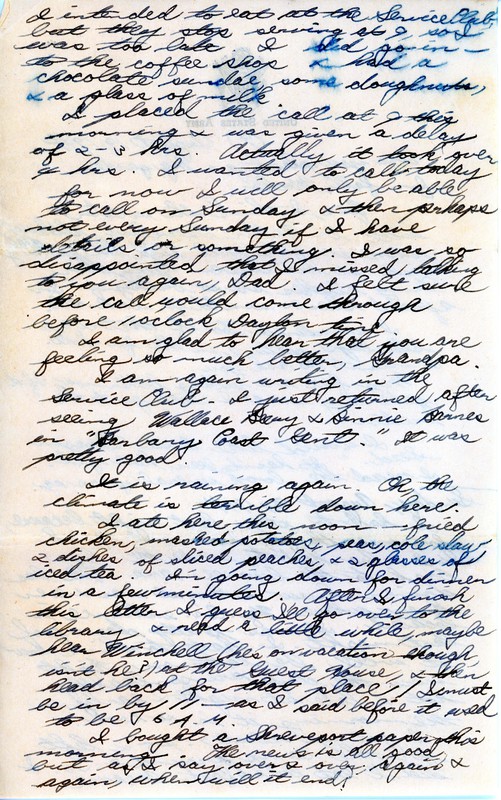 I intended to eat at the Service Club,
but they stop serving at 2 so I
was too late. I did go in
to the coffee shop & had a
chocolate sundae, some doughnuts,
& a glass of milk.
UNITED STATES ARMY
I placed the call at 9 this
morning & was given a delay
of 2-3 hrs. Actually it took over
4 hrs. I wanted to call today
for now I will only be able
to call on Sunday & then perhaps
not every Sunday if I have
details or something. I was so
disappointed that I missed talking
to you again, Dad. I felt sure
the call would come through
before 1 o'clock Dayton time.
I am glad to hear that you are
feeling so much better, Grandpa.
I am again writing in the
Service Club. I just returned after
seeing Wallace Beery & Binnie Barnes
in "Barbary Coast Gent." It was
pretty good.
It is raining again. Oh the
climate is terrible down here.
I ate here this noon - fried
chicken, mashed potatoes, peas, cole slaw
2 dishes of sliced peaches, & 2 glasses of
iced tea. I'm going down for dinner
in a few minutes. After I finish
this letter I guess I'll go over to the
library & read a little while, maybe
hear Winchell (he's on vacation though
isn't he?) at the Guest House, & then
head back for "that place". I must
be in by 11 - as I said before it used
to be 6 A.M.
I bought a Shreveport paper this
morning. The news is all good,
but as I say over & over again &
again, when will it end?